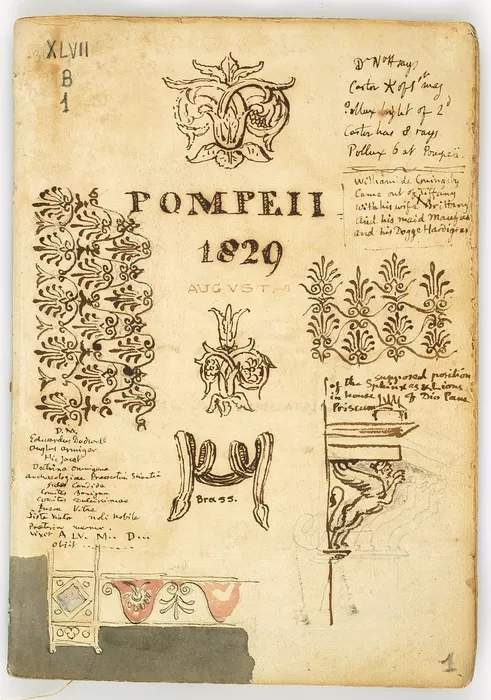 XLVII
B
1
Dr Nott says
Castor * of 1st mag
Pollux bright of 2d
Castor has 8 rays
Pollux 6 at Pompeii.
William de Coningsby
Came out of Brittany
with his wife Tiffany
and his maid Maupas
and his Dogge Hardigras
POMPEII
1829
AUGUST
supposed position
of the Sphinxes & Lions
in house of Dio Pane
Priscum
D. M.
Edwardus Dodwell
Anglus armiger
Hic jacet
Doctrina
archaeologiae
fides Candida
Comitas Benigna
Vitae
Siste Viator noli nobile
Vixit A LV. M.. D...
objit
Brass.
1